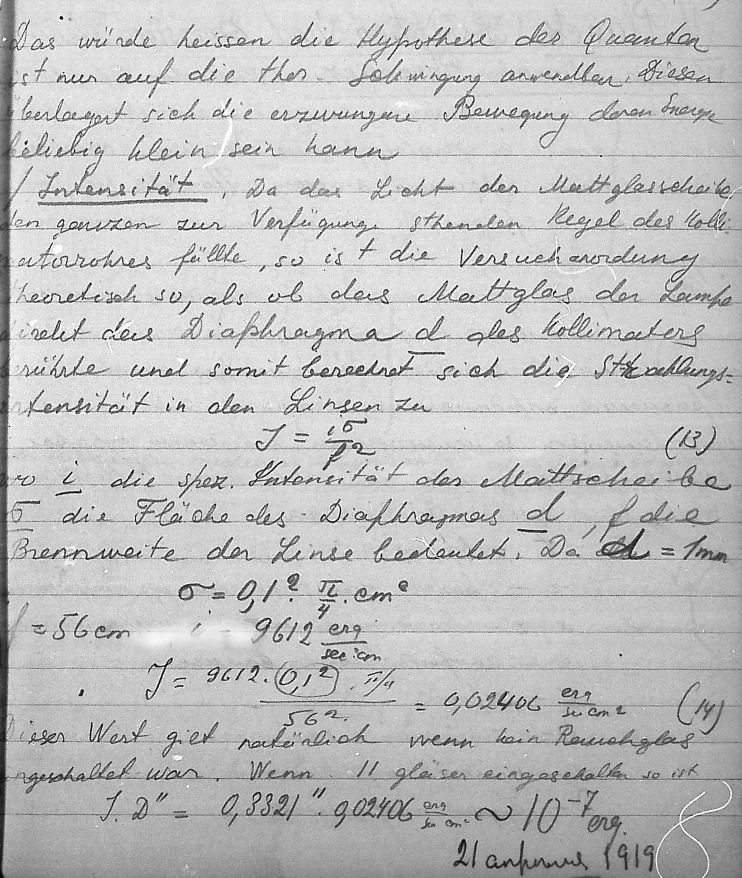 Das würde heissen die Hypothese der Quanten
ist nur auf die ther. Schwingung anwendbar. Diesen
überlagert sich die erzwungene Bewegung deren Energie
beliebig klein sein kann
Intensität. Da das Licht der Mattglasscheibe
den ganzen zur Verfügung sthenden Kegel des Kolli-
matorrohres füllte, so ist die Versuchanordung
theoretisch so, als ob das Mattglas der Lampe
direkt das Diaphragma d des Kollimators
berührte und somit berechnet sich die Strahlungs-
intensität in den Linsen zu
J = iσ/f² (13)
wo i die spez. Intensität der Mattscheibe
σ die Fläche des Diaphragmas d, f die
Brennweite der Linse bedeutet. Da d = 1mm
σ = 0,1². π/4 . cm²
f = 56 cm i = 9612 erg/sec cm
J = 9612. (0,1²) . π/4 / 56². = 0,02406 erg/sec cm² (14)
Dieser Wert gilt natürlich wenn kein Rauchglas
ingeschaltet war. Wenn 11 gläser eingeschalten so ist
J. D¹¹ = 0,3321¹¹. 0,02406 erg/sec cm² ~ 10⁻⁷ erg.
21 апреля 1919